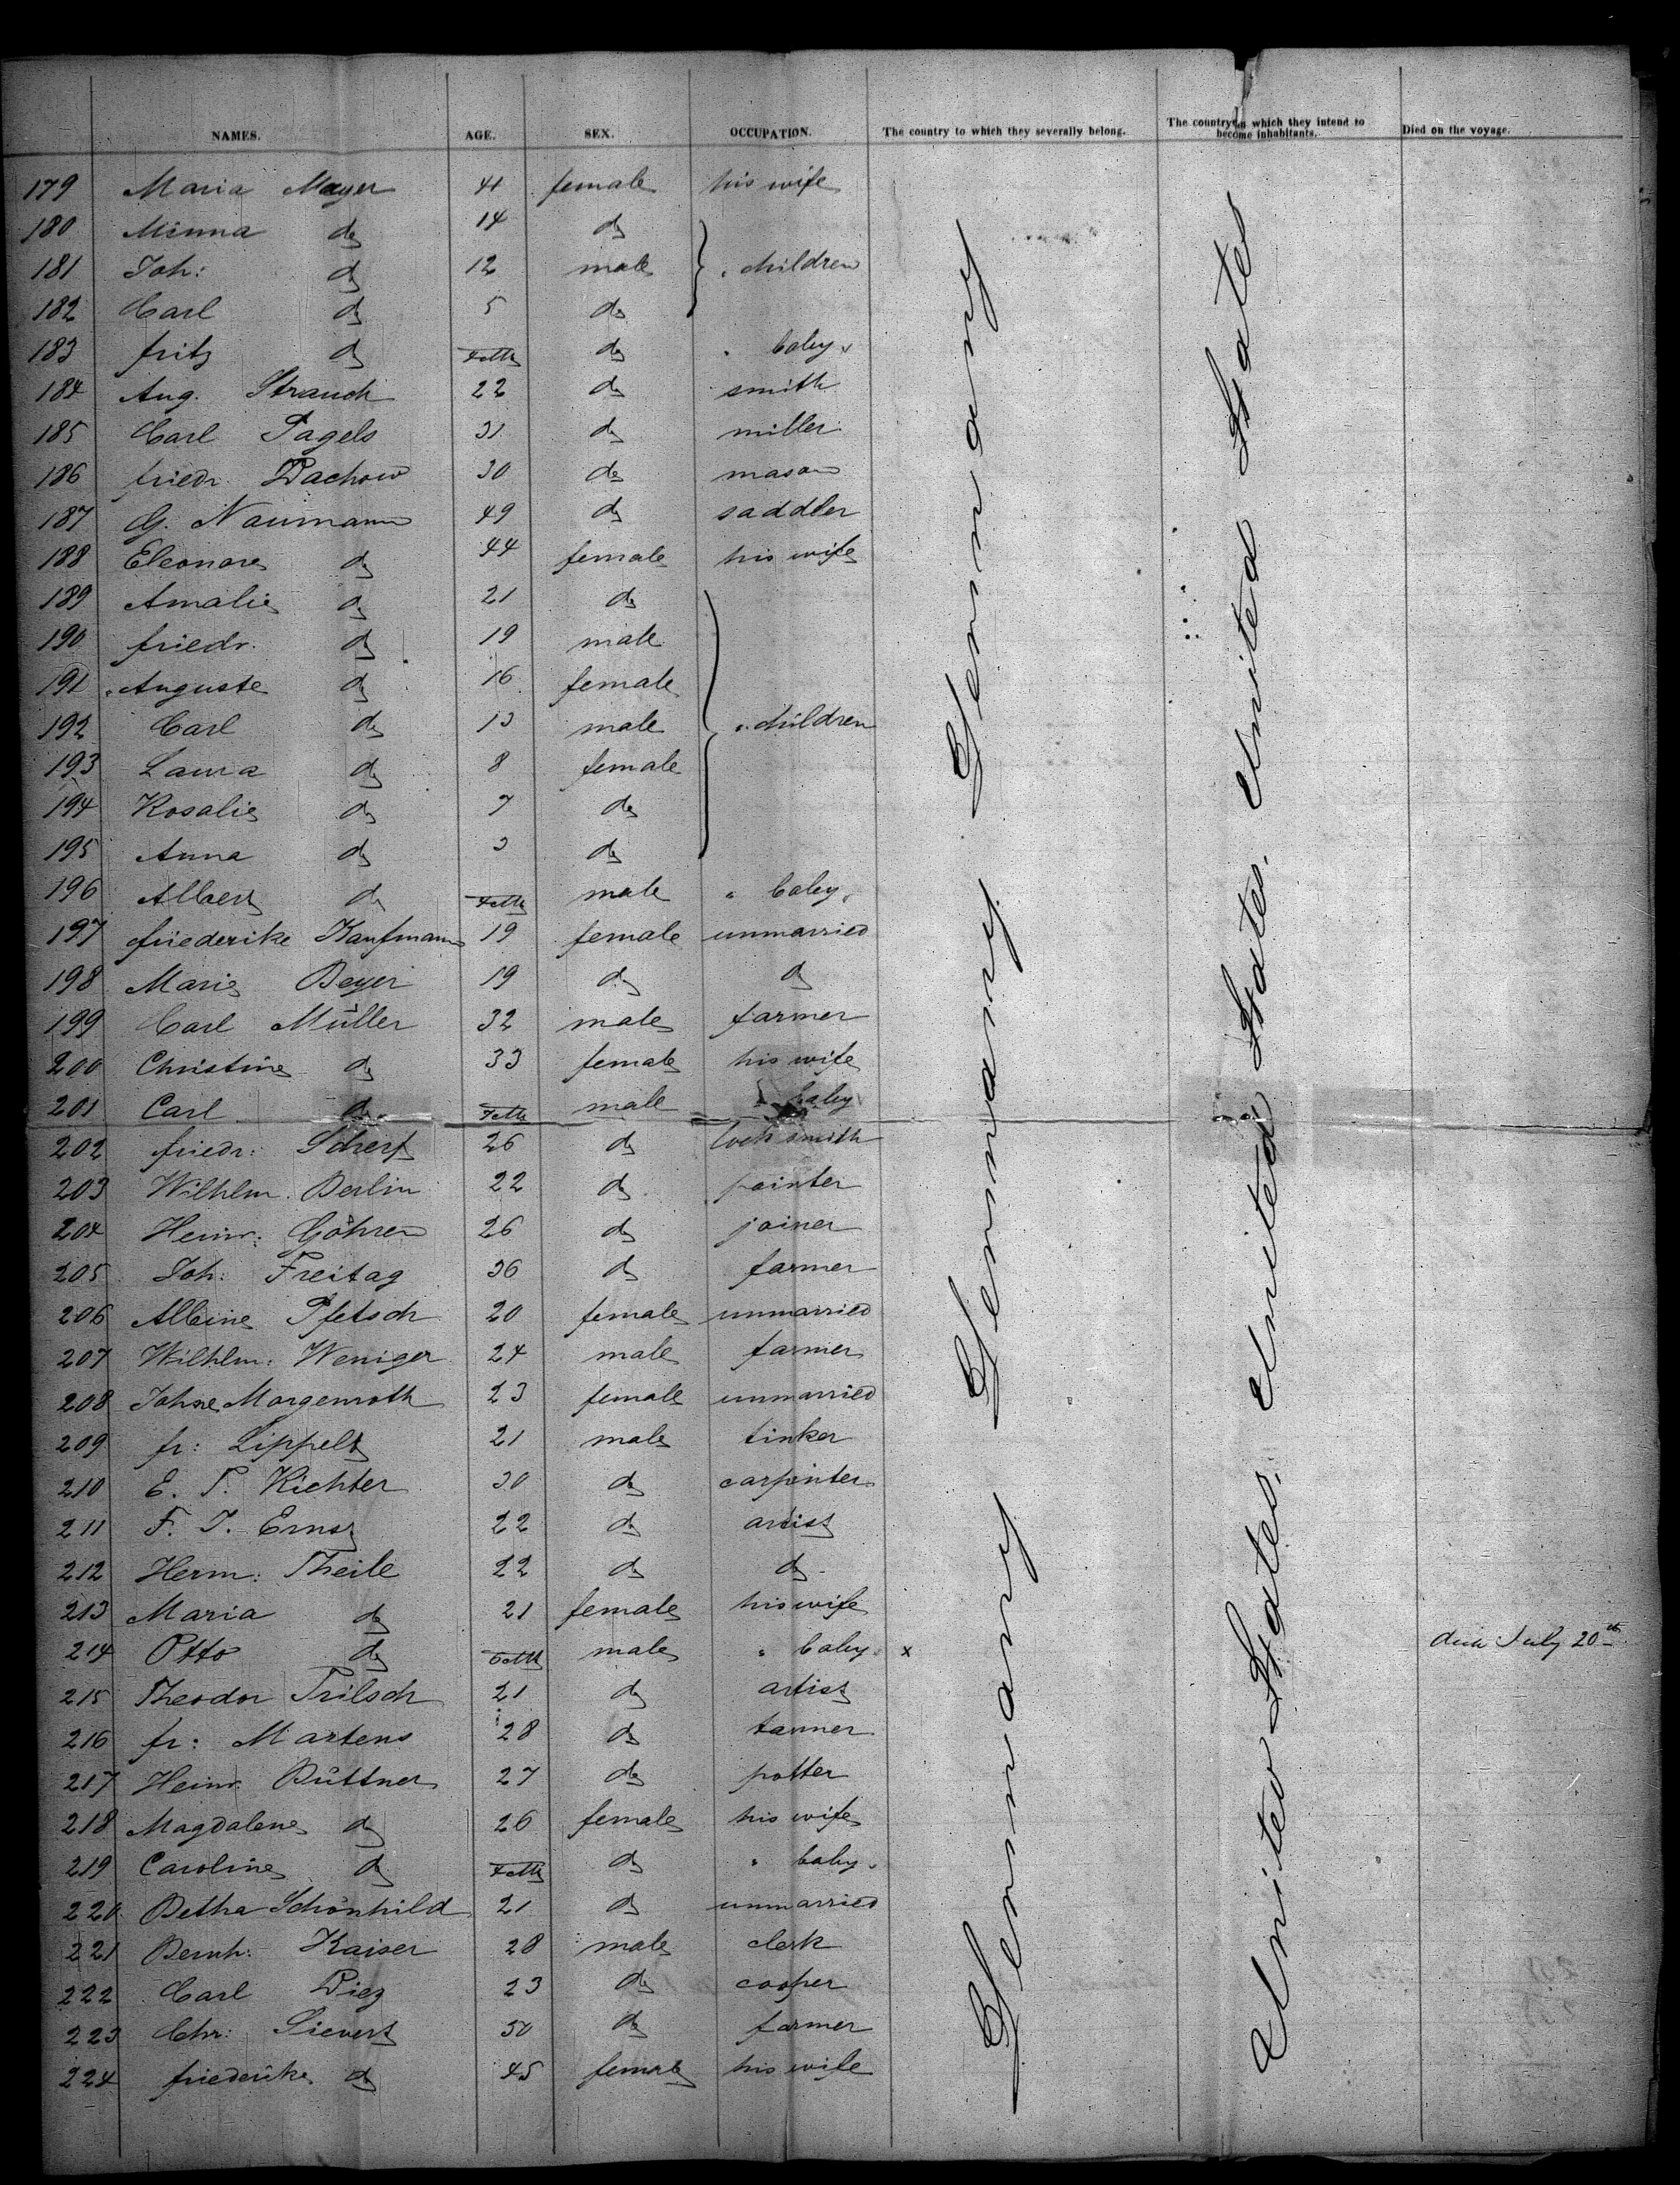 NAMES. AGE. SEX. OCCUPATION. The country to which they severally belong. The country in which they intend to become inhabitants. Died on the voyage.
179 Maria Mayer 41 female his wife
180 Minna do 14 do
181 Joh: do 12 male " children
182 Carl do 5 do
183 fritz do do " baby
184 Aug. Strauch 22 do smith
185 Carl Pagels 31 do miller
186 friedr. Wachow 30 do mason
187 G. Naumann 49 do saddler
188 Eleonore do 44 female his wife
189 Amalie do 21 do
190 friedr. do 19 male
191 Auguste do 16 female
192 Carl do 13 male " children
193 Laura do 8 female
194 Rosalie do 7 do
195 Anna do 3 do
196 Albert do male " baby
197 friederike Kaufmann 19 female unmarried
198 Marie Beyer 19 do do
199 Carl Müller 32 male farmer
200 Christine do 33 female his wife
201 Carl do male baby
202 friedr: Scherf 26 do locksmith
203 Wilhlm. Berlin 22 do painter
204 Heinr: Göhren 26 do joiner
205 Joh: Freitag 36 do farmer
206 Albine Pfetsch 20 female unmarried
207 Wilhlm: Weniger 24 male farmer
208 Johne Morgenroth 23 female unmarried
209 fr: Lippelt 21 male tinker
210 E. T. Richter 30 do carpinter
211 F. T. Ernst 22 do artist
212 Herm: Theile 22 do do
213 Maria do 21 female his wife
214 Otto do male " baby x died July 20th
215 Theodor Trilsch 21 do artist
216 fr: Martens 28 do tanner
217 Heinr. Büttner 27 do potter
218 Magdalene do 26 female his wife
219 Caroline do do " baby
220 Betha Schönhild 21 do unmarried
221 Bernh: Kaiser 28 male clerk
222 Carl Diez 23 do cooper
223 Chr: Sievert 50 do farmer
224 friederike do 45 female his wife
Germany Germany Germany
United States. United States. United States